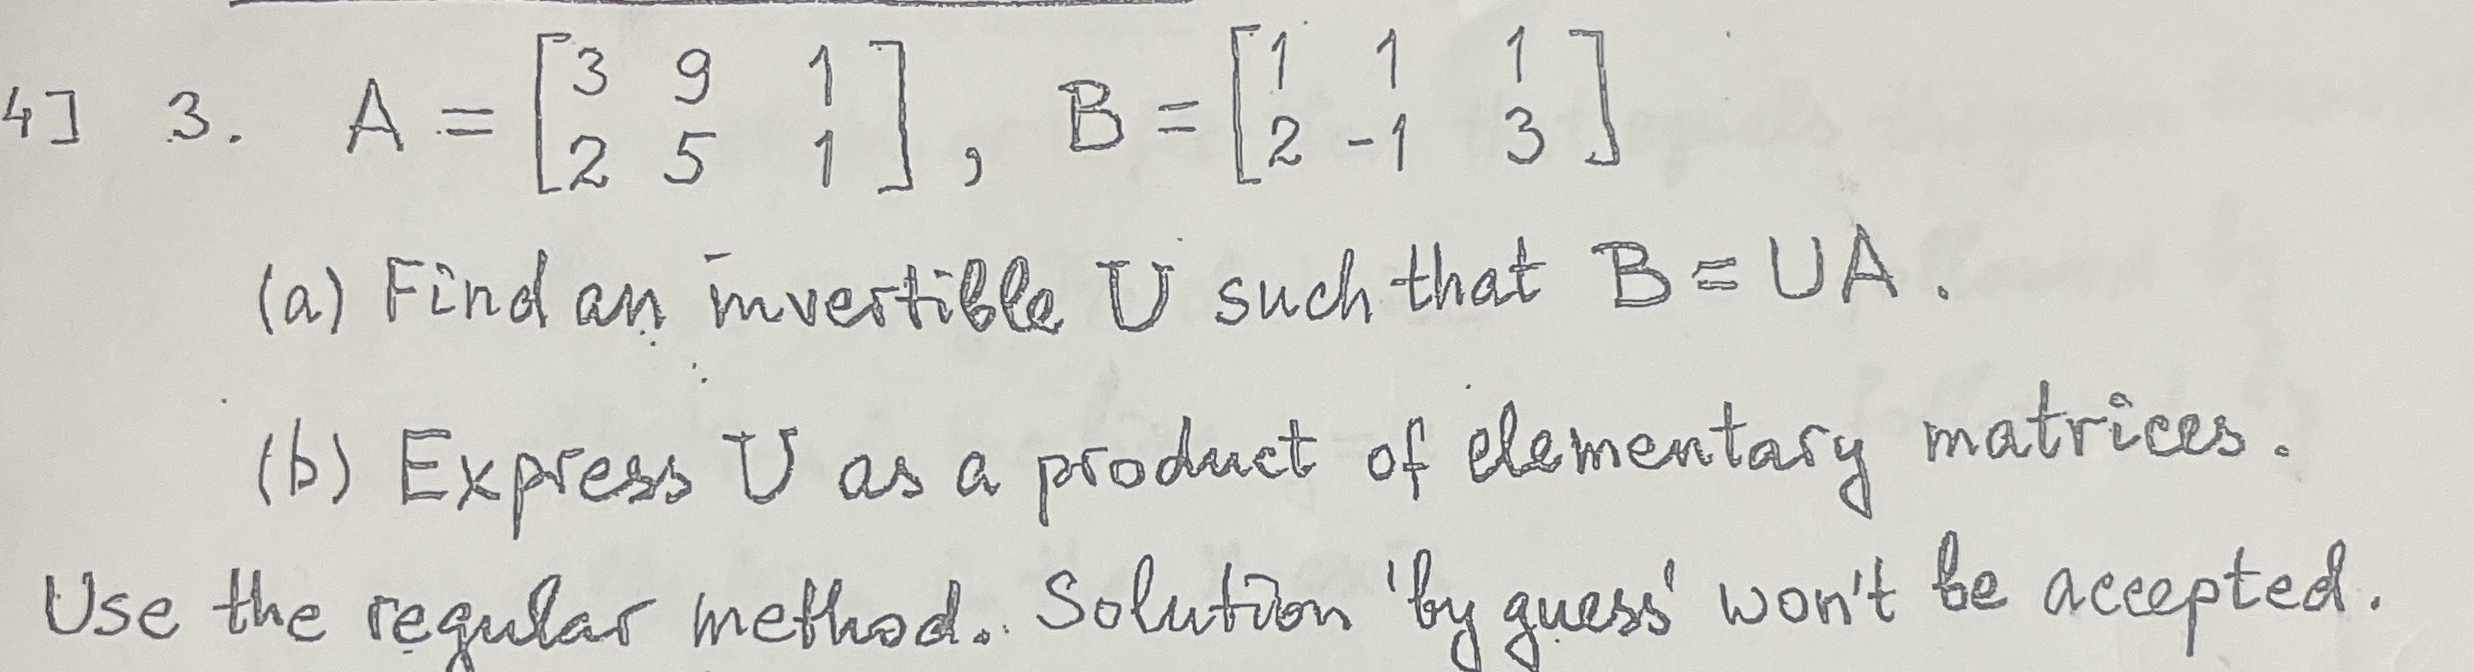 4] 3. A = [3 9 1 2 5 1], B = [1 1 1 2 -1 3]
(a) Find an invertible U such that B = UA.
(b) Express U as a product of elementary matrices.
Use the regular method. Solution 'by guess' won't be accepted.